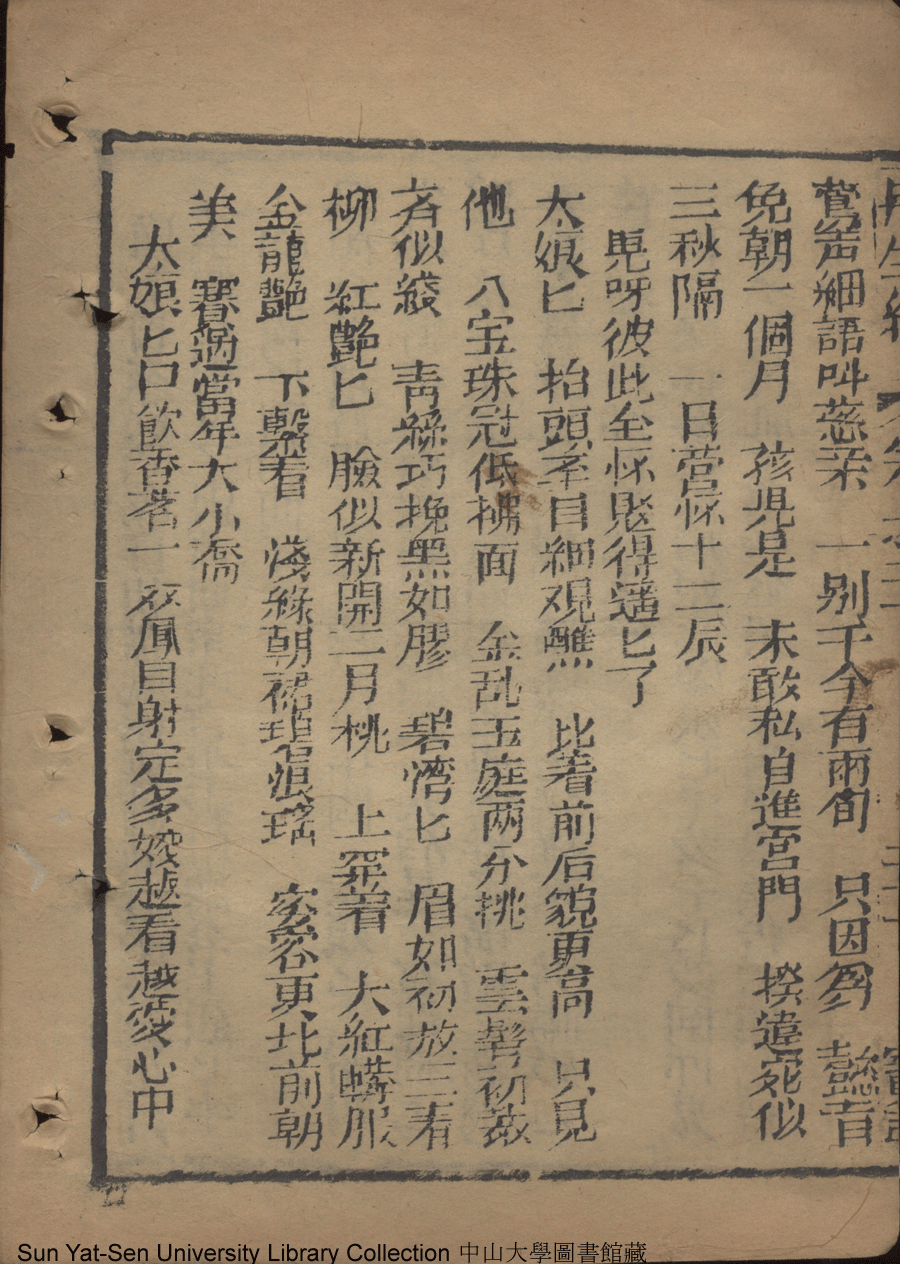 鶯声細語叫慈亲 一别于今有兩旬 只因为 懿旨
免朝一個月 孩児是 未敢私自進宮門 揆違宛似
三秋隔 一日营怀十二辰
児呀彼此全怀賍得遥匕了
太娘匕 抬頭举目細观瞧 比着前后貌更高 只見
他 八宝珠冠低拂面 金乱玉庭两分挑 雲髩初放
斉似綫 靑絲巧挽黑如膠 碧湾匕 眉如初放三春
柳 红艶匕 臉似新開二月桃 上罩着 大紅蟒服
金龍艶 下繫着 淺綠朝裙琅瑤 衮衮更比前朝
美 賽過當年大小喬
太娘匕口飲香茗一双鳳目射定多姣越看越愛心中
Sun Yat-Sen University Library Collection 中山大學圖書館藏